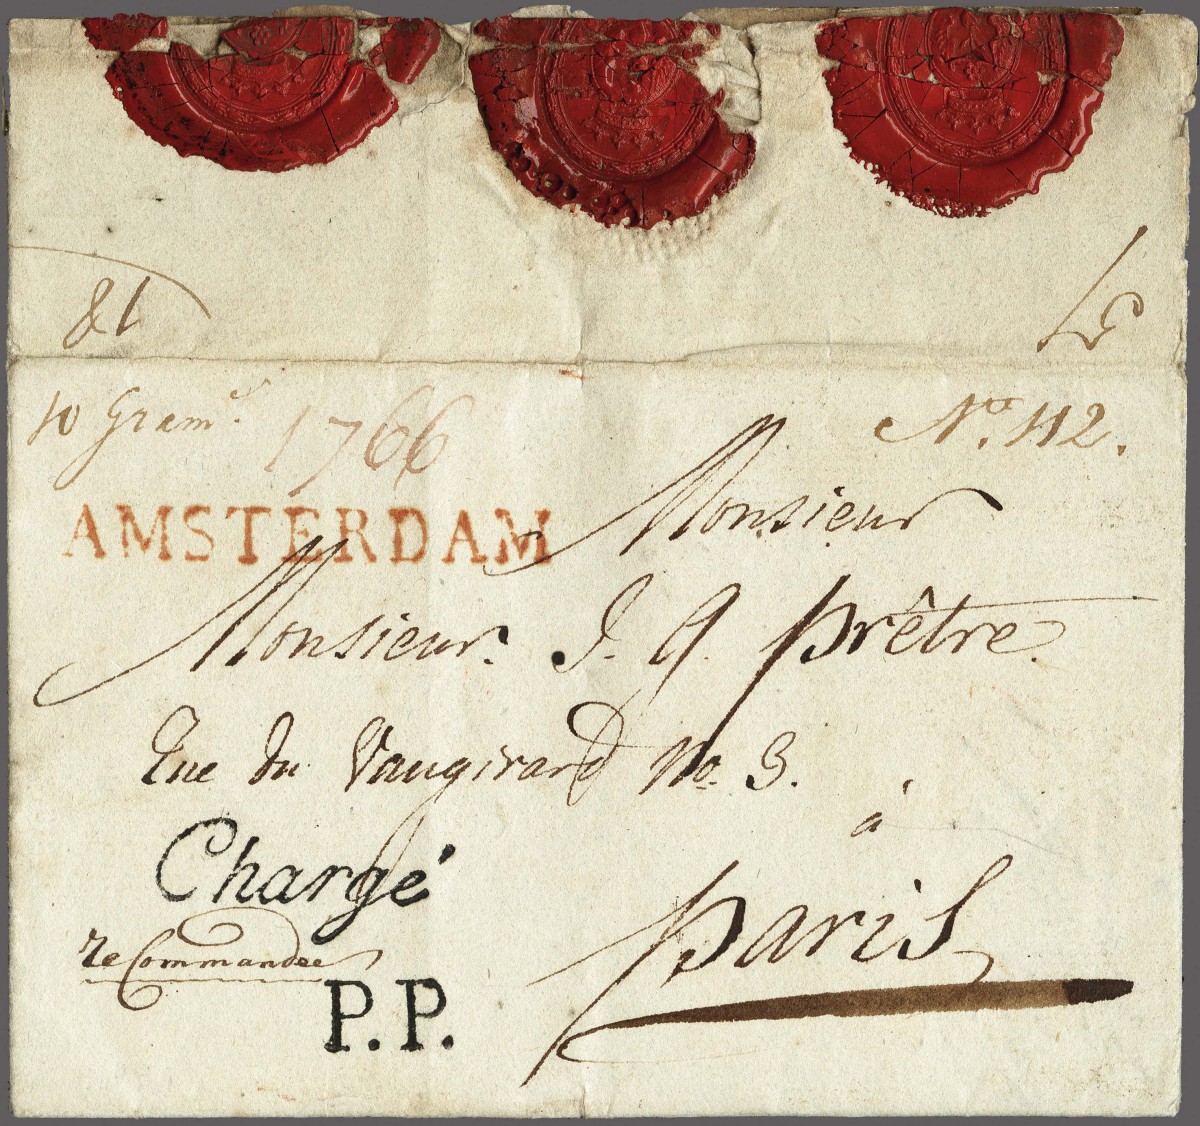 10 Gram.ˢ 1766 Nᵒ. 112.
AMSTERDAM
Monsieur
Monsieur. J. G. prêtre.
Rue du Vaugirard No. 3.
à
Chargé
paris
reCommandee
P.P.